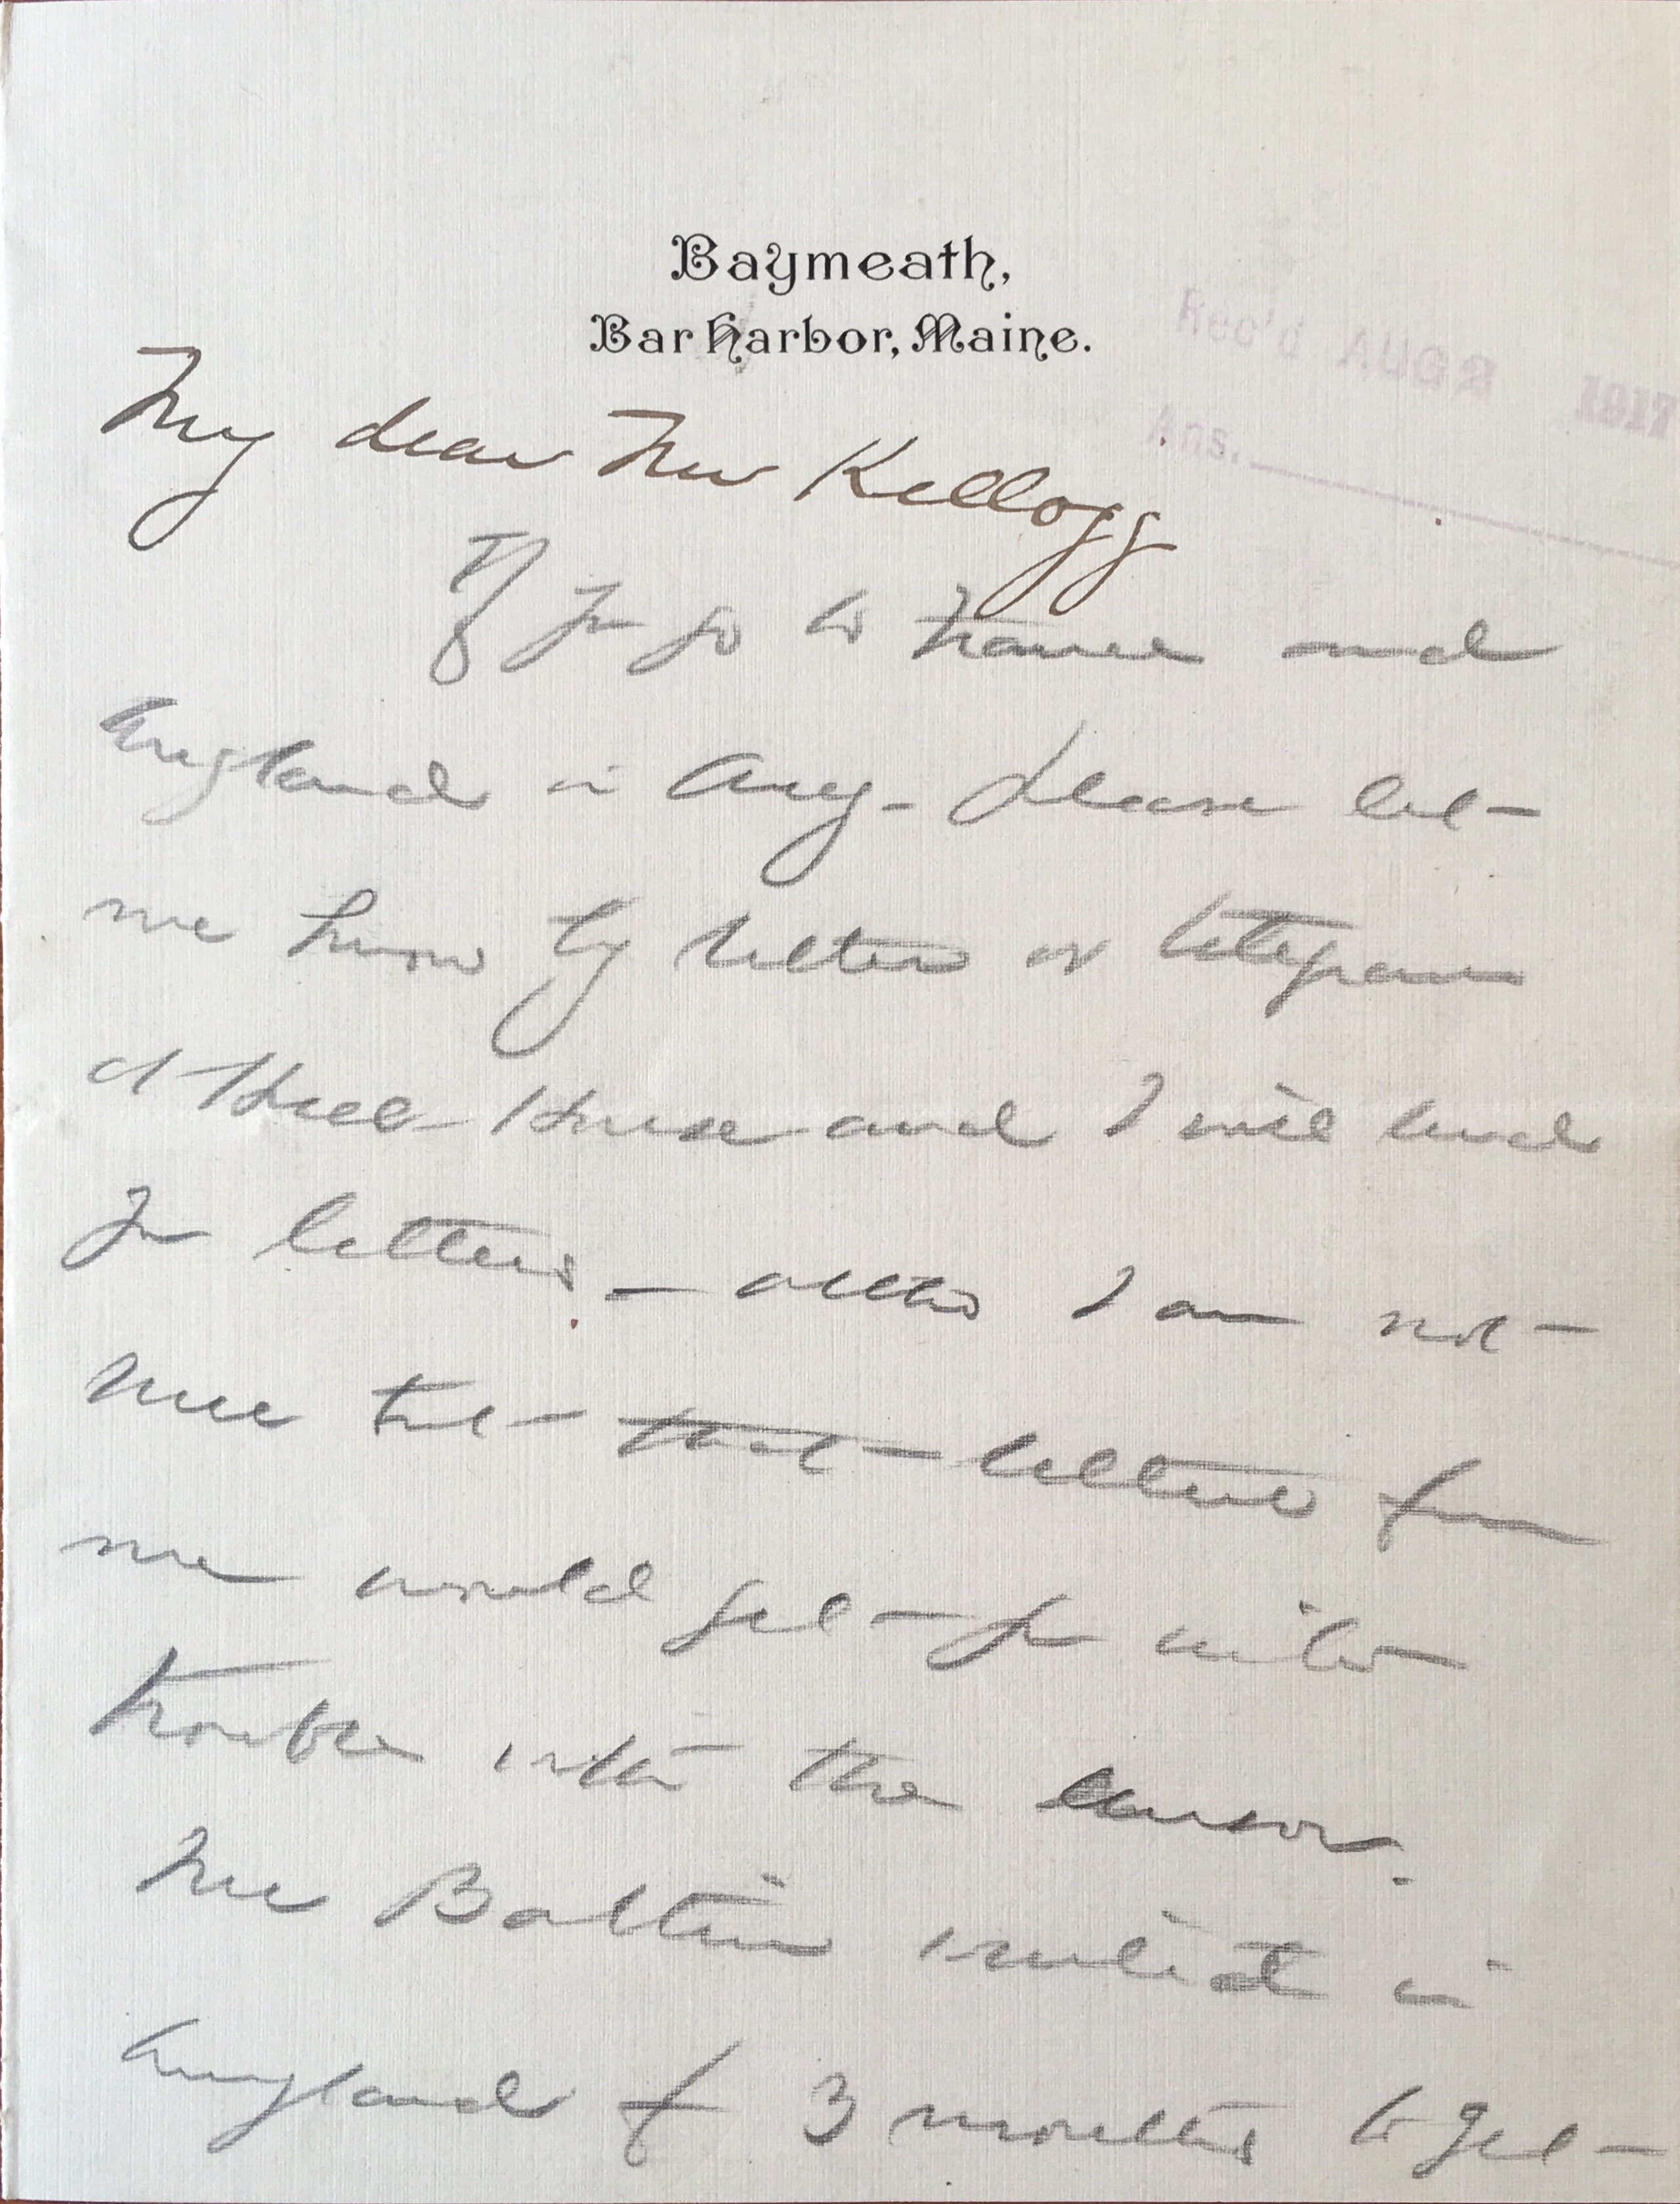 Baymeath,
Bar Harbor, Maine.
Rec'd AUG 2 1917
Ans.
My dear Mr Kellogg
If you go to France and
England in Aug - please let
me know by letter or telegram
at Hull-House and I will send
you letters - altho I am not
sure but that letters from
me would get you into
trouble with the censor.
Mr Balch waited in
England for 3 months to get